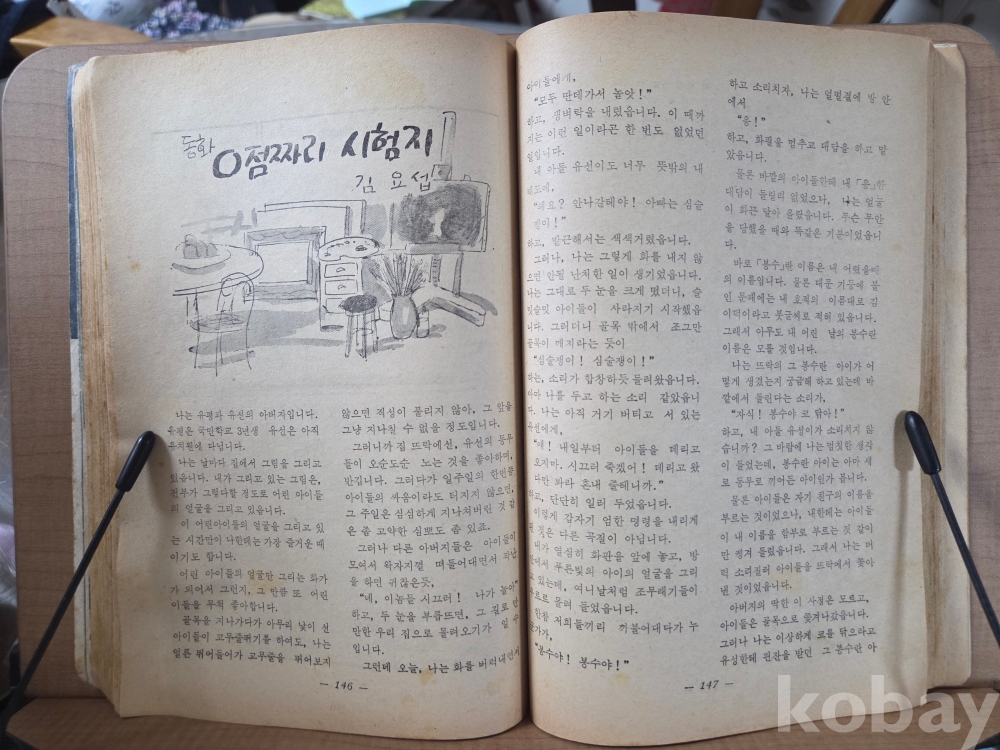 동화
0점짜리 시험지
김 요섭
나는 유평과 유선의 아버지입니다.
유평은 국민학교 3년생 유선은 아직
유치원에 다닙니다.
나는 날마다 집에서 그림을 그리고
있습니다. 내가 그리고 있는 그림은,
전부가 그렇다할 정도로 어린 아이들
의 얼굴을 그리고 있읍니다.
이 어린아이들의 얼굴을 그리고 있
는 시간만이 나한테는 가장 즐거운 때
이기도 합니다.
어린 아이들의 얼굴만 그리는 화가
가 되어서 그런지, 그 만큼 또 어린
이들을 무척 좋아합니다.
골목을 지나가다가 아무리 낯이 선
아이들이 고무줄뛰기를 하여도, 나는
얼른 뛰어들어가 고무줄을 뛰어보지
않으면 직성이 풀리지 않아, 그 앞을
그냥 지나칠 수 없을 정도입니다.
그러니까 집 뜨락에선, 유선의 동무
들이 오순도순 노는 것을 좋아하며,
반깁니다. 그러다가 일주일의 한번쯤
아이들의 싸움이라도 터지지 않으면,
그 주일은 심심하게 지나쳐버린 것 같
은 좀 고약한 심뽀도 좀 있죠.
그러나 다른 아버지들은 아이들이
모여서 왁자지껄 떠들어대면서
을 하면 귀찮은듯,
"네, 이놈들 시끄러! 나가 놀아"
하고, 두 눈을 부릅뜨면, 그 길로
만한 우리 집으로 몰려오기가 일 수
입니다.
그런데 오늘, 나는 화를 버럭내면서
— 146 —
아이들에게,
"모두 딴데가서 놀앗!"
하고, 생벼락을 내렸읍니다. 이 때까
지는 이런 일이라곤 한 번도 없었던
일입니다.
내 아들 유선이도 너무 뜻밖의 내
태도에,
"왜요? 안나갈테야! 아빠는 심술
쟁이!"
하고, 발근해서는 색색거렸읍니다.
그러나, 나는 그렇게 화를 내지 않
으면 안될 난처한 일이 생기었읍니다.
나는 그대로 두 눈을 크게 떴더니, 슬
밋슬밋 아이들이 사라지기 시작했읍
니다. 그러더니 골목 밖에서 조그만
골목이 메지라는 듯이
"심술쟁이! 심술쟁이!"
하는, 소리가 합창하듯 들려왔읍니다.
아마 나를 두고 하는 소리 같았읍니
다. 나는 아직 거기 버티고 서 있는
유선에게,
"얘! 내일부터 아이들을 데리고
오지마. 시끄러 죽겠어! 데리고 왔
다만 봐라 혼내 줄테니까."
하고, 단단히 일러 두었읍니다.
이렇게 갑자기 엄한 명령을 내리게
된 것은 다른 곡절이 아닙니다.
내가 열심히 화판을 앞에 놓고, 방
안에서 푸른빛의 아이의 얼굴을 그리
고 있는데, 여니날처럼 조무래기들이
우르르 몰려 들었읍니다.
한참 저희들끼리 까불어대다가 누
군가가,
"봉수야! 봉수야!"
하고 소리치자, 나는 얼떨결에 방 안
에서
"응!"
하고, 화필을 멈추고 대답을 하고 말
았읍니다.
물론 바깥의 아이들한테 내「응」한
대답이 들릴리 없었으나, 나는 얼굴
이 화끈 달아 올랐읍니다. 무슨 무안
을 당했을 때와 똑같은 기분이었읍니
다.
바로「봉수」란 이름은 내 어렸을때
의 이름입니다. 물론 대문 기둥에 붙
인 문패에는 내 호적의 이름대로 김
이덕이라고 붓글씨로 적혀 있읍니다.
그래서 아무도 내 어린 날의 봉수란
이름은 모를 것입니다.
나는 뜨락의 그 봉수란 아이가 어
떻게 생겼는지 궁금해 하고 있는데 바
깥에서 들린다는 소리가,
"자식! 봉수야 코 닦아!"
하고, 내 아들 유성이가 소리치지 않
습니까? 그 바람에 나는 멈칫한 생각
이 들었는데, 봉수란 아이는 아마 새
로 동무로 끼어든 아이인가 봅니다.
물론 아이들은 자기 친구의 이름을
부르는 것이었으나, 내한테는 아이들
이 내 이름을 함부로 부르는 것 같이
만 켕겨 들렸읍니다. 그래서 나는 버
럭 소리질러 아이들을 뜨락에서 쫓아
낸 것이었읍니다.
아버지의 딱한 이 사정은 모르고,
아이들은 골목으로 쫓겨나갔읍니다.
그러나 나는 이상하게 코를 닦으라고
유성한테 핀잔을 받던 그 봉수란 아
— 147 —
kobay